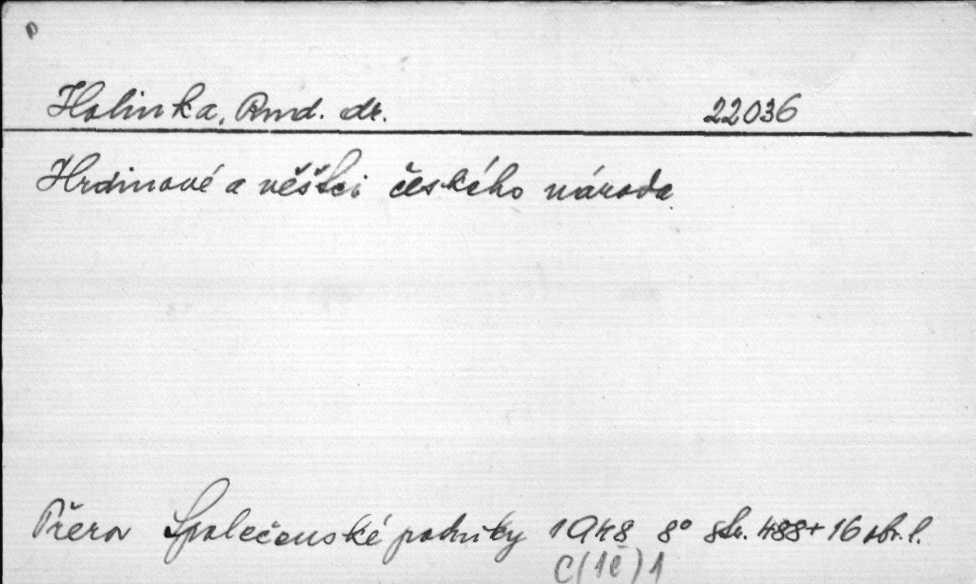 Holinka, Rmd. dr. 22036
Hrdinové a věštci českého národa
Přerov Společenské podniky 1948 8° str. 488+16 obr. l.
C(1č)1